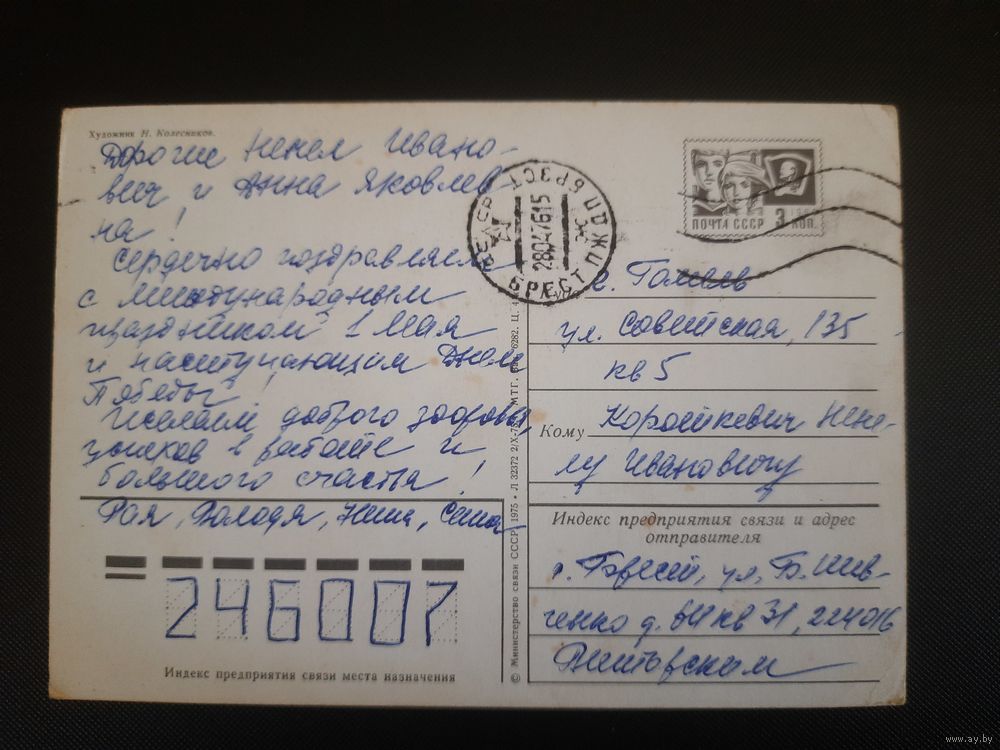 Художник Н. Колесников.
Дорогие Ненел Ивано-
вич и Анна Яковлев-
на!
Сердечно поздравляем
с международным
праздником 1 Мая
и наступающим Днем
Победы!
Желаем доброго здоровья,
успехов в работе и
большого счастья!
Рая, Володя, Нина, Сеша
246007
Индекс предприятия связи места назначения
© Министерство связи СССР, 1975 • Л 32372 2/X-75
МТГ. 6282. Ц. 4
ПОЧТА СССР 3 КОП.
БРЭСТ
28047615
БРЕСТ
г. Гомель
ул. Советская, 135
кв 5
Кому Короткевич Нене-
лу Ивановичу
Индекс предприятия связи и адрес
отправителя
г. Брест, ул. Б. Шев-
ченко д. кв 31, 224016
www.ay.by